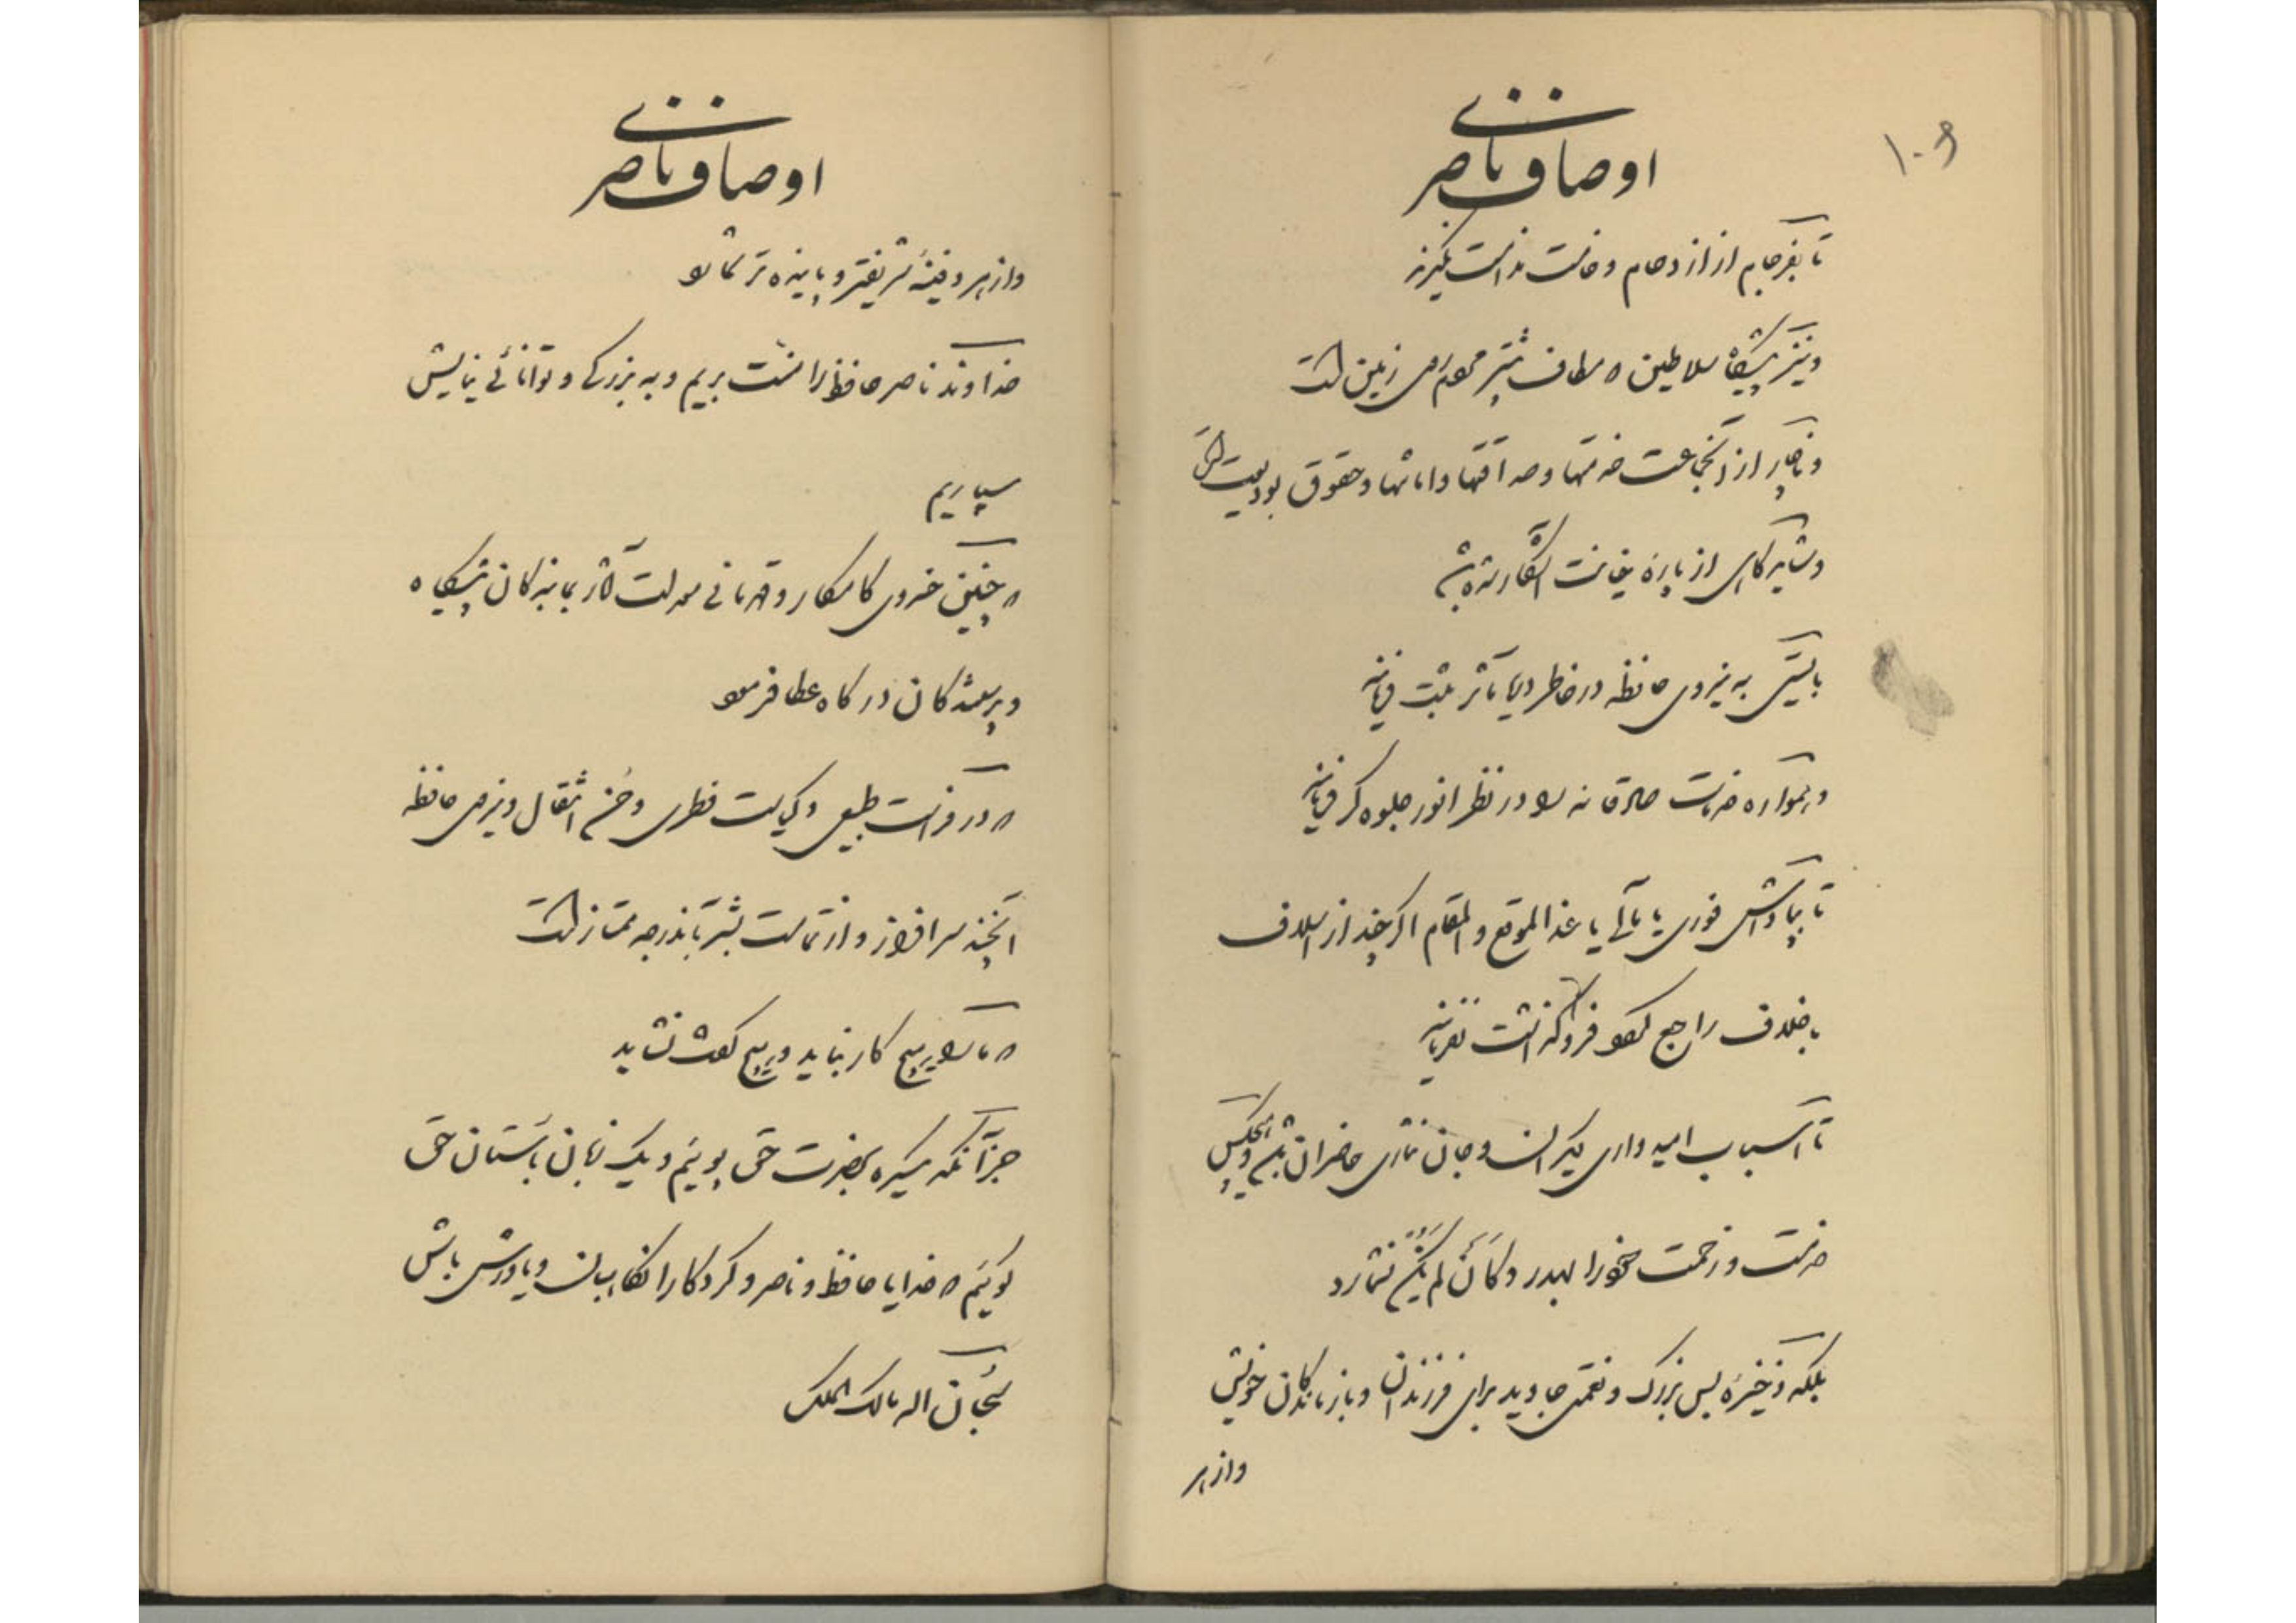 ۱۰۶
اوصاف ناصری
تا بفرجام از ازدحام و خامت ندامت نگیرند
و نیز پیشگاه سلاطین که مطاف بشر محروم زمین است
و ناچار از آنجماعت خدمتها و صداقتها و امانتها و حقوق بودیعت است
و شاید گاهی از پاره خیانت آشکار شده باشد
بایستی به نیروی حافظه در خاطر دریا مآثر ثبت فرمایند
و همواره خدمات صادقانه را در نظر انور جلوه گر فرمایند
تا پاداش فوری یا مآلی یا عند الموقع و المقام اگر چند از اسلاف
باخلاف راجع بود فروگذاشت نفرمایند
تا اسباب امیدواری دیگران و جان نثاری حاضران باشد و هیچکس
خدمت و زحمت خود را هدر و کأن لم یکن نشمارد
بلکه ذخیره بس بزرگ و نعمتی جاوید برای فرزندان و بازماندگان خویش
و از هر
اوصاف ناصری
و از هر دفینه شریفتر و پاینده تر شمارد
خداوند ناصر حافظ را منت بریم و به بزرگی و توانائی نیایش
سپاریم
که چنین خسروی کامکار و قهرمانی معدلت آثار بما بندگان پیشگاه
و پرستندگان درگاه عطا فرمود
که در فراست طبیعی و کیاست فطری و حسن انتقال و نیروی حافظه
آنچند سرافراز و از تمامت بشر تا بدرجه ممتاز است
که ما را هیچ کار نباید و هیچ گفت نشاید
جز آنکه یکسره بحضرت حق پوئیم و یک زبان بآستان حق
گوئیم که خدایا حافظ و ناصر و کردگارا نگاهبان و یاورش باش
سبحان اله مالک الملک